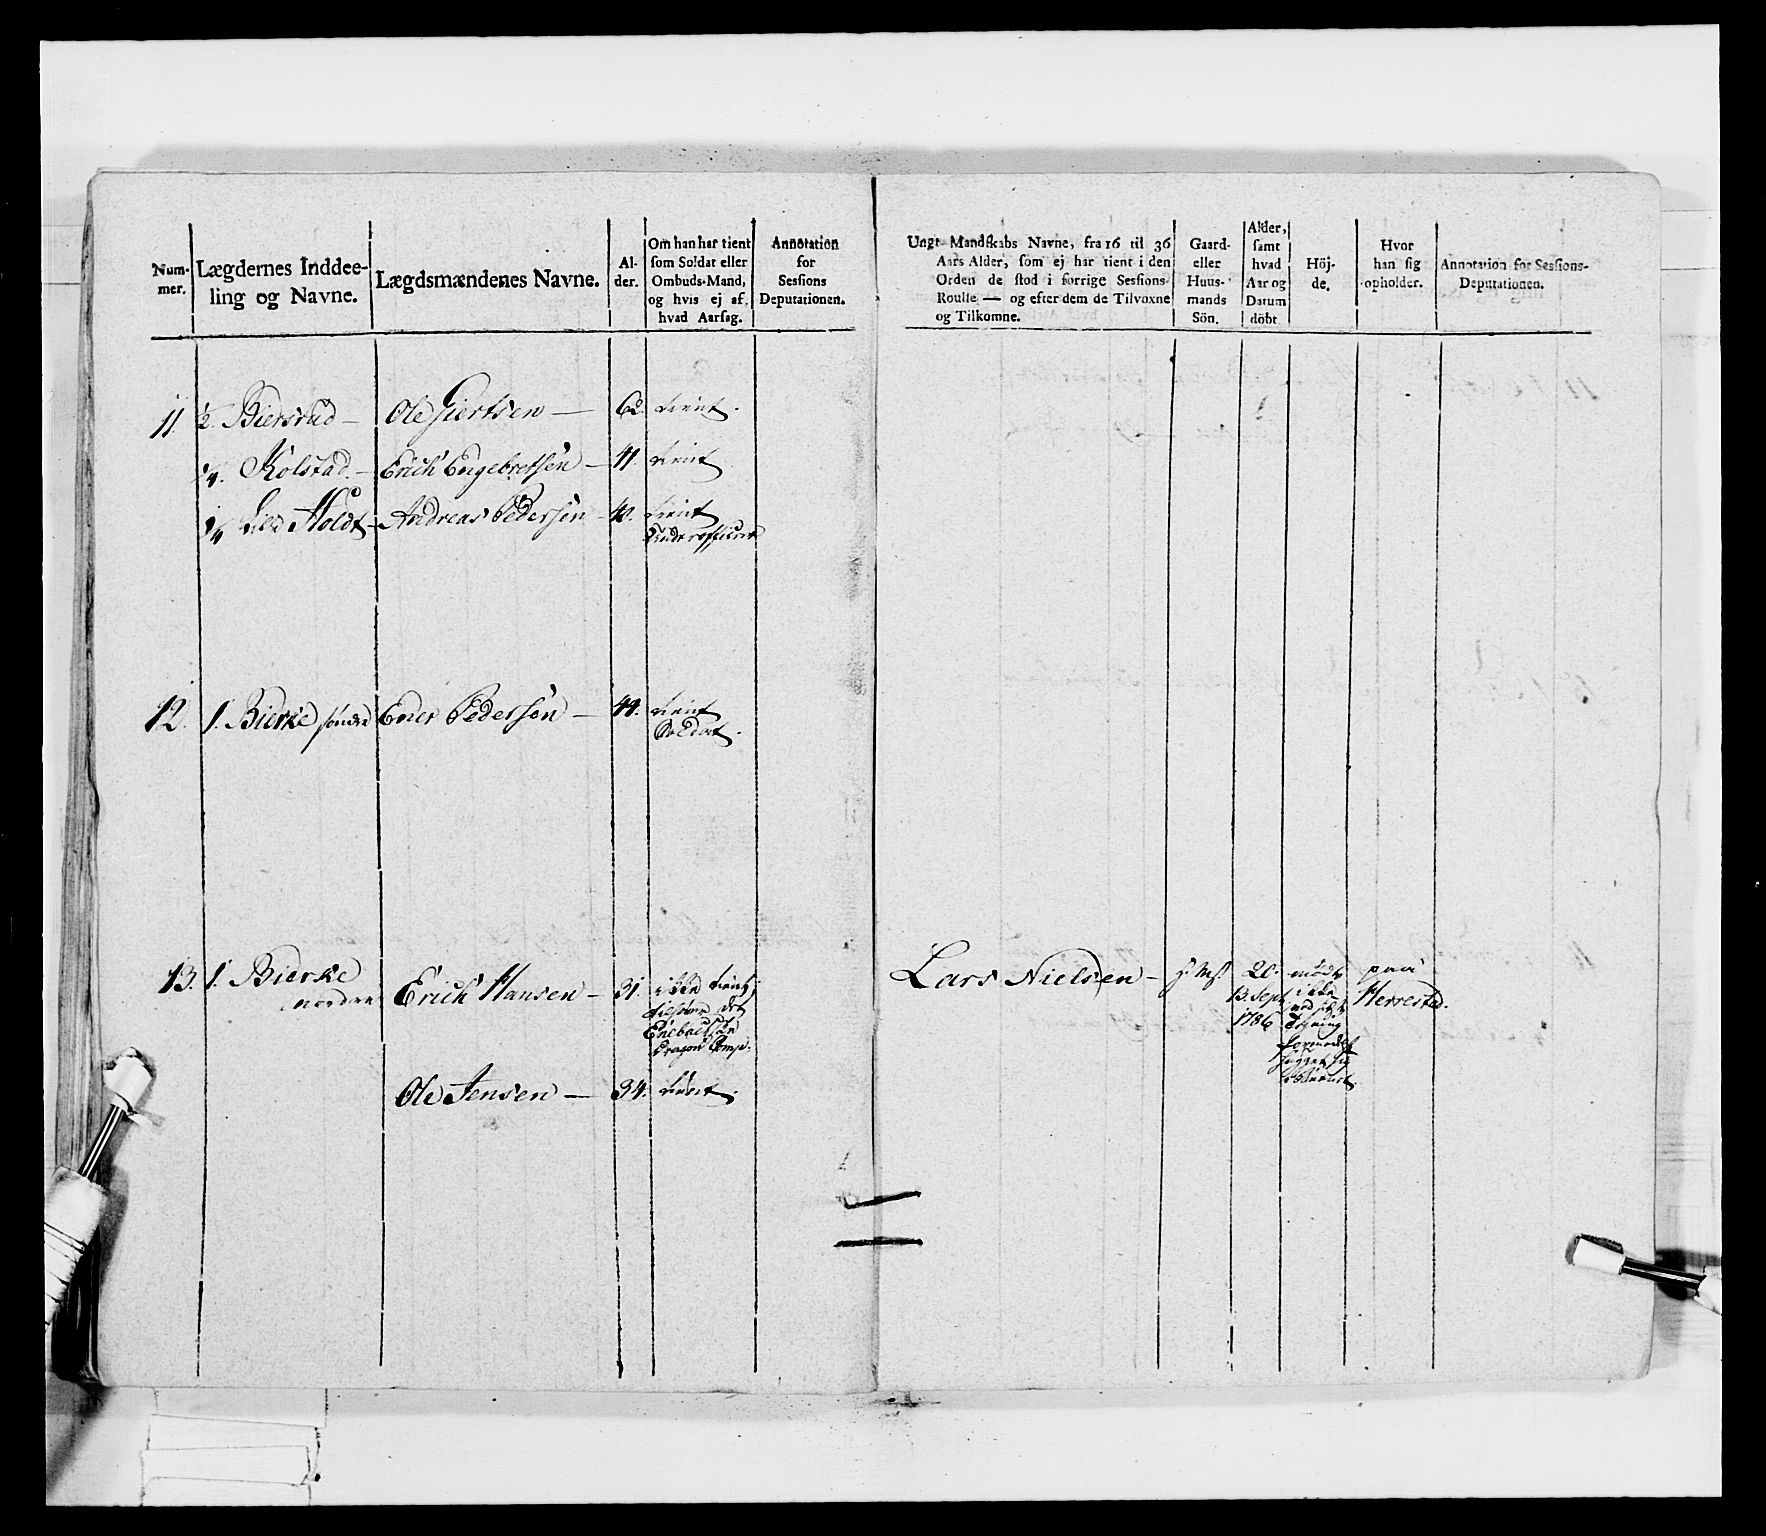 Num-
mer.
Lægdernes Inddee-
ling og Navne.
Lægdsmændenes Navne.
Al-
der.
Om han har tient
som Soldat eller
Ombuds-Mand,
og hvis ej af
hvad Aarsag.
Annotation
for
Sessions
Deputationen.
Ungt Mandskabs Navne, fra 16 til 36
Aars Alder, som ej har tient i den
Orden de stod i forrige Sessions-
Roulle — og efter dem de Tilvoxne
og Tilkomne.
Gaard-
eller
Huus-
mands
Sön.
Alder,
samt
hvad
Aar og
Datum
döbt
Höj-
de.
Hvor
han sig
opholder.
Annotation for Sessions-
Deputationen.
11. 1/2. Biersrud — Ole Giertsen — 62. tient.
1/4. Kolstad — Erich Engebretsen — 41. tient
1/4 Holdt — Andreas Pedersen — 40. tient
Underofficer
12. 1. Bierke søndre Ener Pedersen — 44. tient
Soldat.
13. 1. Bierke
nordre
Erich Hansen — 31. ikke tient
det
Dragon Comp.
Ole Jensen — 34. tient.
Lars Nielsen — 20. mødt paa
13. Sept. ikke Herrestad.
1786